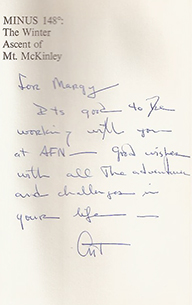 MINUS 148°:
The Winter
Ascent of
Mt. McKinley
For Margy
It's good to be
working with you
at AFN — Good wishes
with all the adventure
and challenges in
your life —
Art